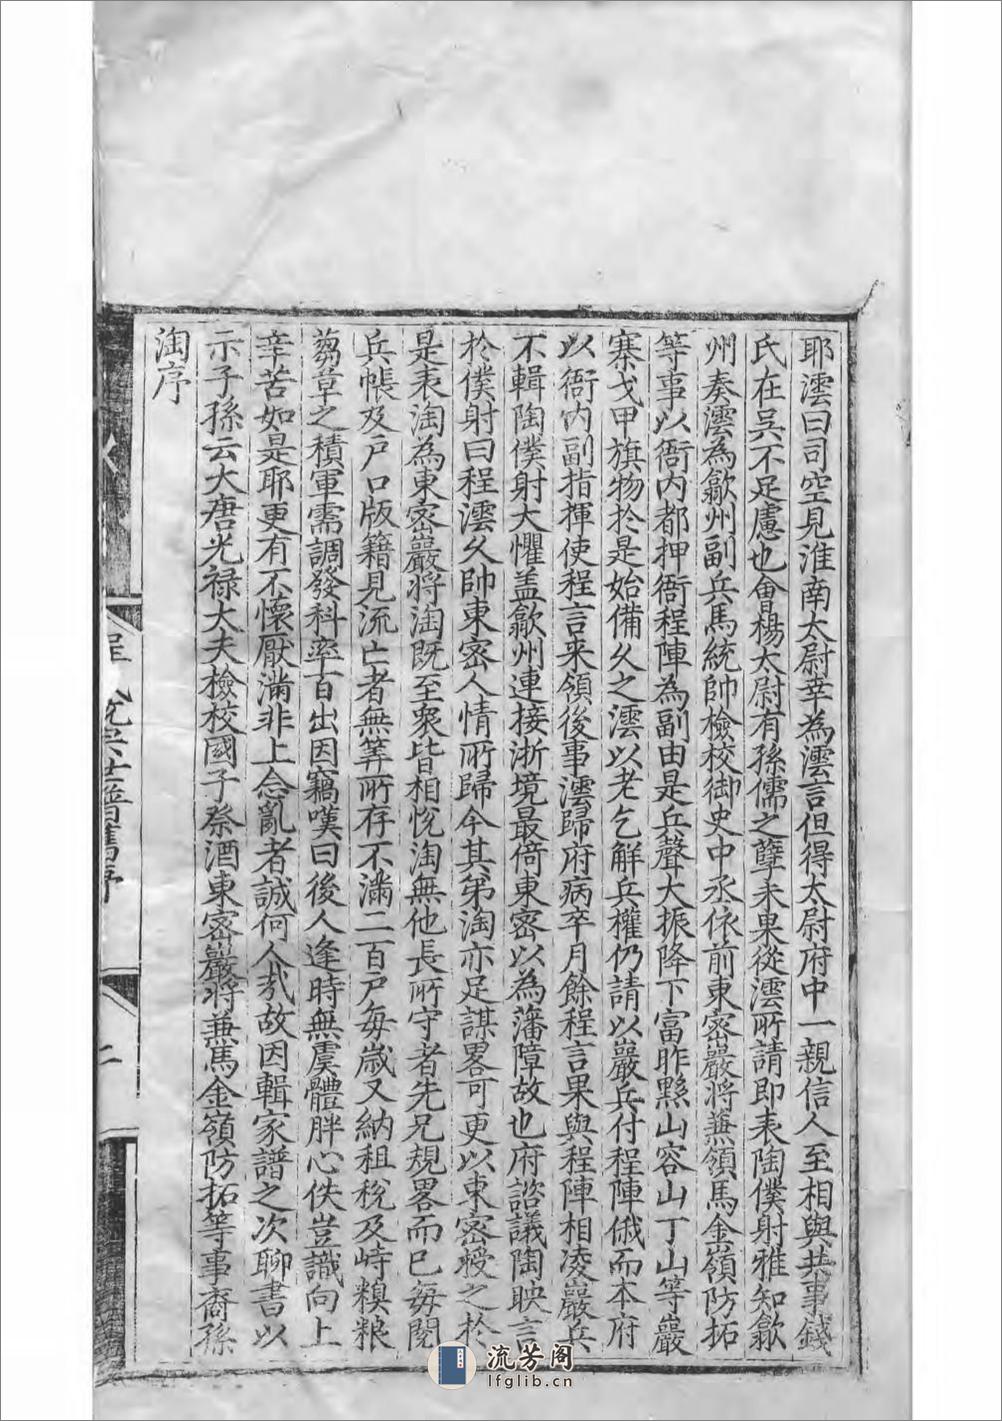 耶澐曰司空見淮南太尉幸為澐言但得太尉府中一親信人至相與共事錢
氏在吳不足慮也會楊太尉有孫儒之孽未果從澐所請即表陶僕射雅知歙
州奏澐為歙州副兵馬統帥檢校御史中丞依前東密巖將兼領馬金嶺防拓
等事以衙內都押衙程陣為副由是兵聲大振降下富昨黟山容山丁山等巖
寨戈甲旗物於是始備久之澐以老乞解兵權仍請以巖兵付程陣俄而本府
以衙內副指揮使程言來領後事澐歸府病卒月餘程言果與程陣相凌巖兵
不輯陶僕射大懼盖歙州連接浙境最倚東密以為藩障故也府諮議陶映言
於僕射曰程澐久帥東密人情所歸今其弟淘亦足謀畧可更以東密授之於
是表淘為東密巖將淘既至衆皆相悅淘無他長所守者先兄規畧而已每閱
兵帳及戶口版籍見流亡者無筭所存不滿二百戶每歲又納租稅及峙糗粮
蒭草之積軍需調發科率百出因竊嘆曰後人逢時無虞體胖心佚豈識向上
辛苦如是耶更有不懷厭滿非上念亂者誠何人哉故因輯家譜之次聊書以
示子孫云大唐光禄大夫檢校國子祭酒東密巖將兼馬金嶺防拓等事裔孫
淘序
譜舊序
二
流芳阁
lfglib.cn